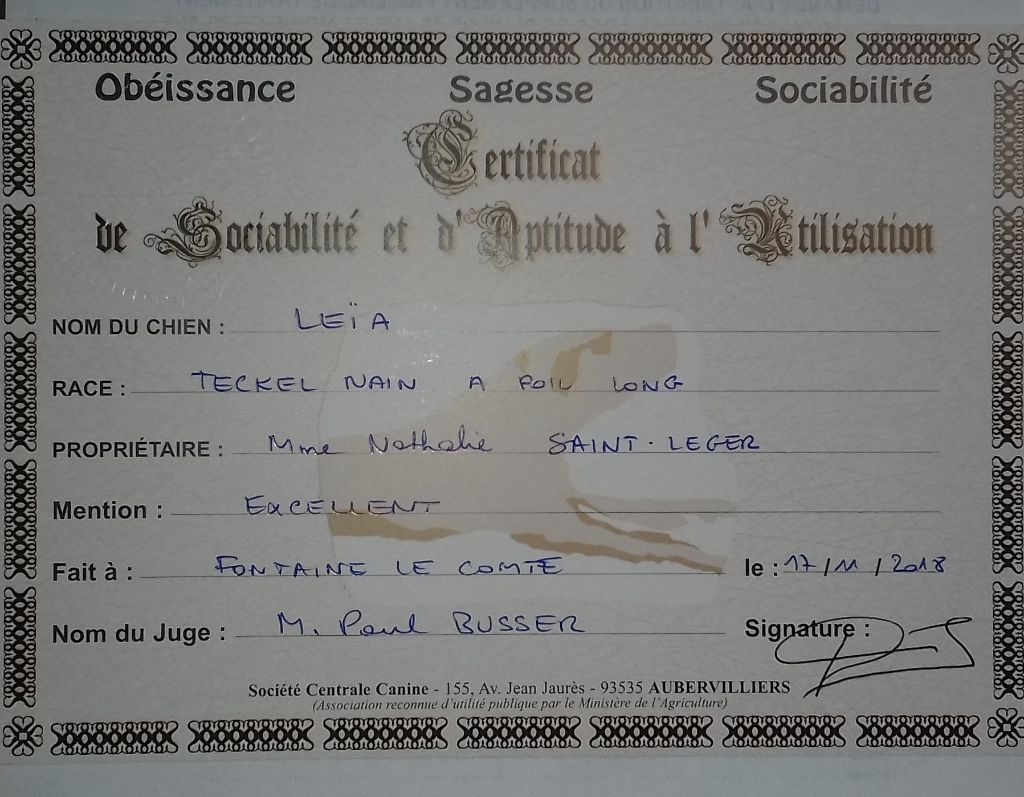 Obéissance Sagesse Sociabilité
Certificat
de Sociabilité et d'Aptitude à l'Utilisation
NOM DU CHIEN : LEÏA
RACE : TECKEL NAIN A POIL LONG
PROPRIÉTAIRE : Mme Nathalie SAINT-LEGER
Mention : EXCELLENT
Fait à : FONTAINE LE COMTE le : 17/11/2018
Nom du Juge : M. Paul BUSSER Signature :
Société Centrale Canine - 155, Av. Jean Jaurès - 93535 AUBERVILLIERS
(Association reconnue d'utilité publique par le Ministère de l'Agriculture)